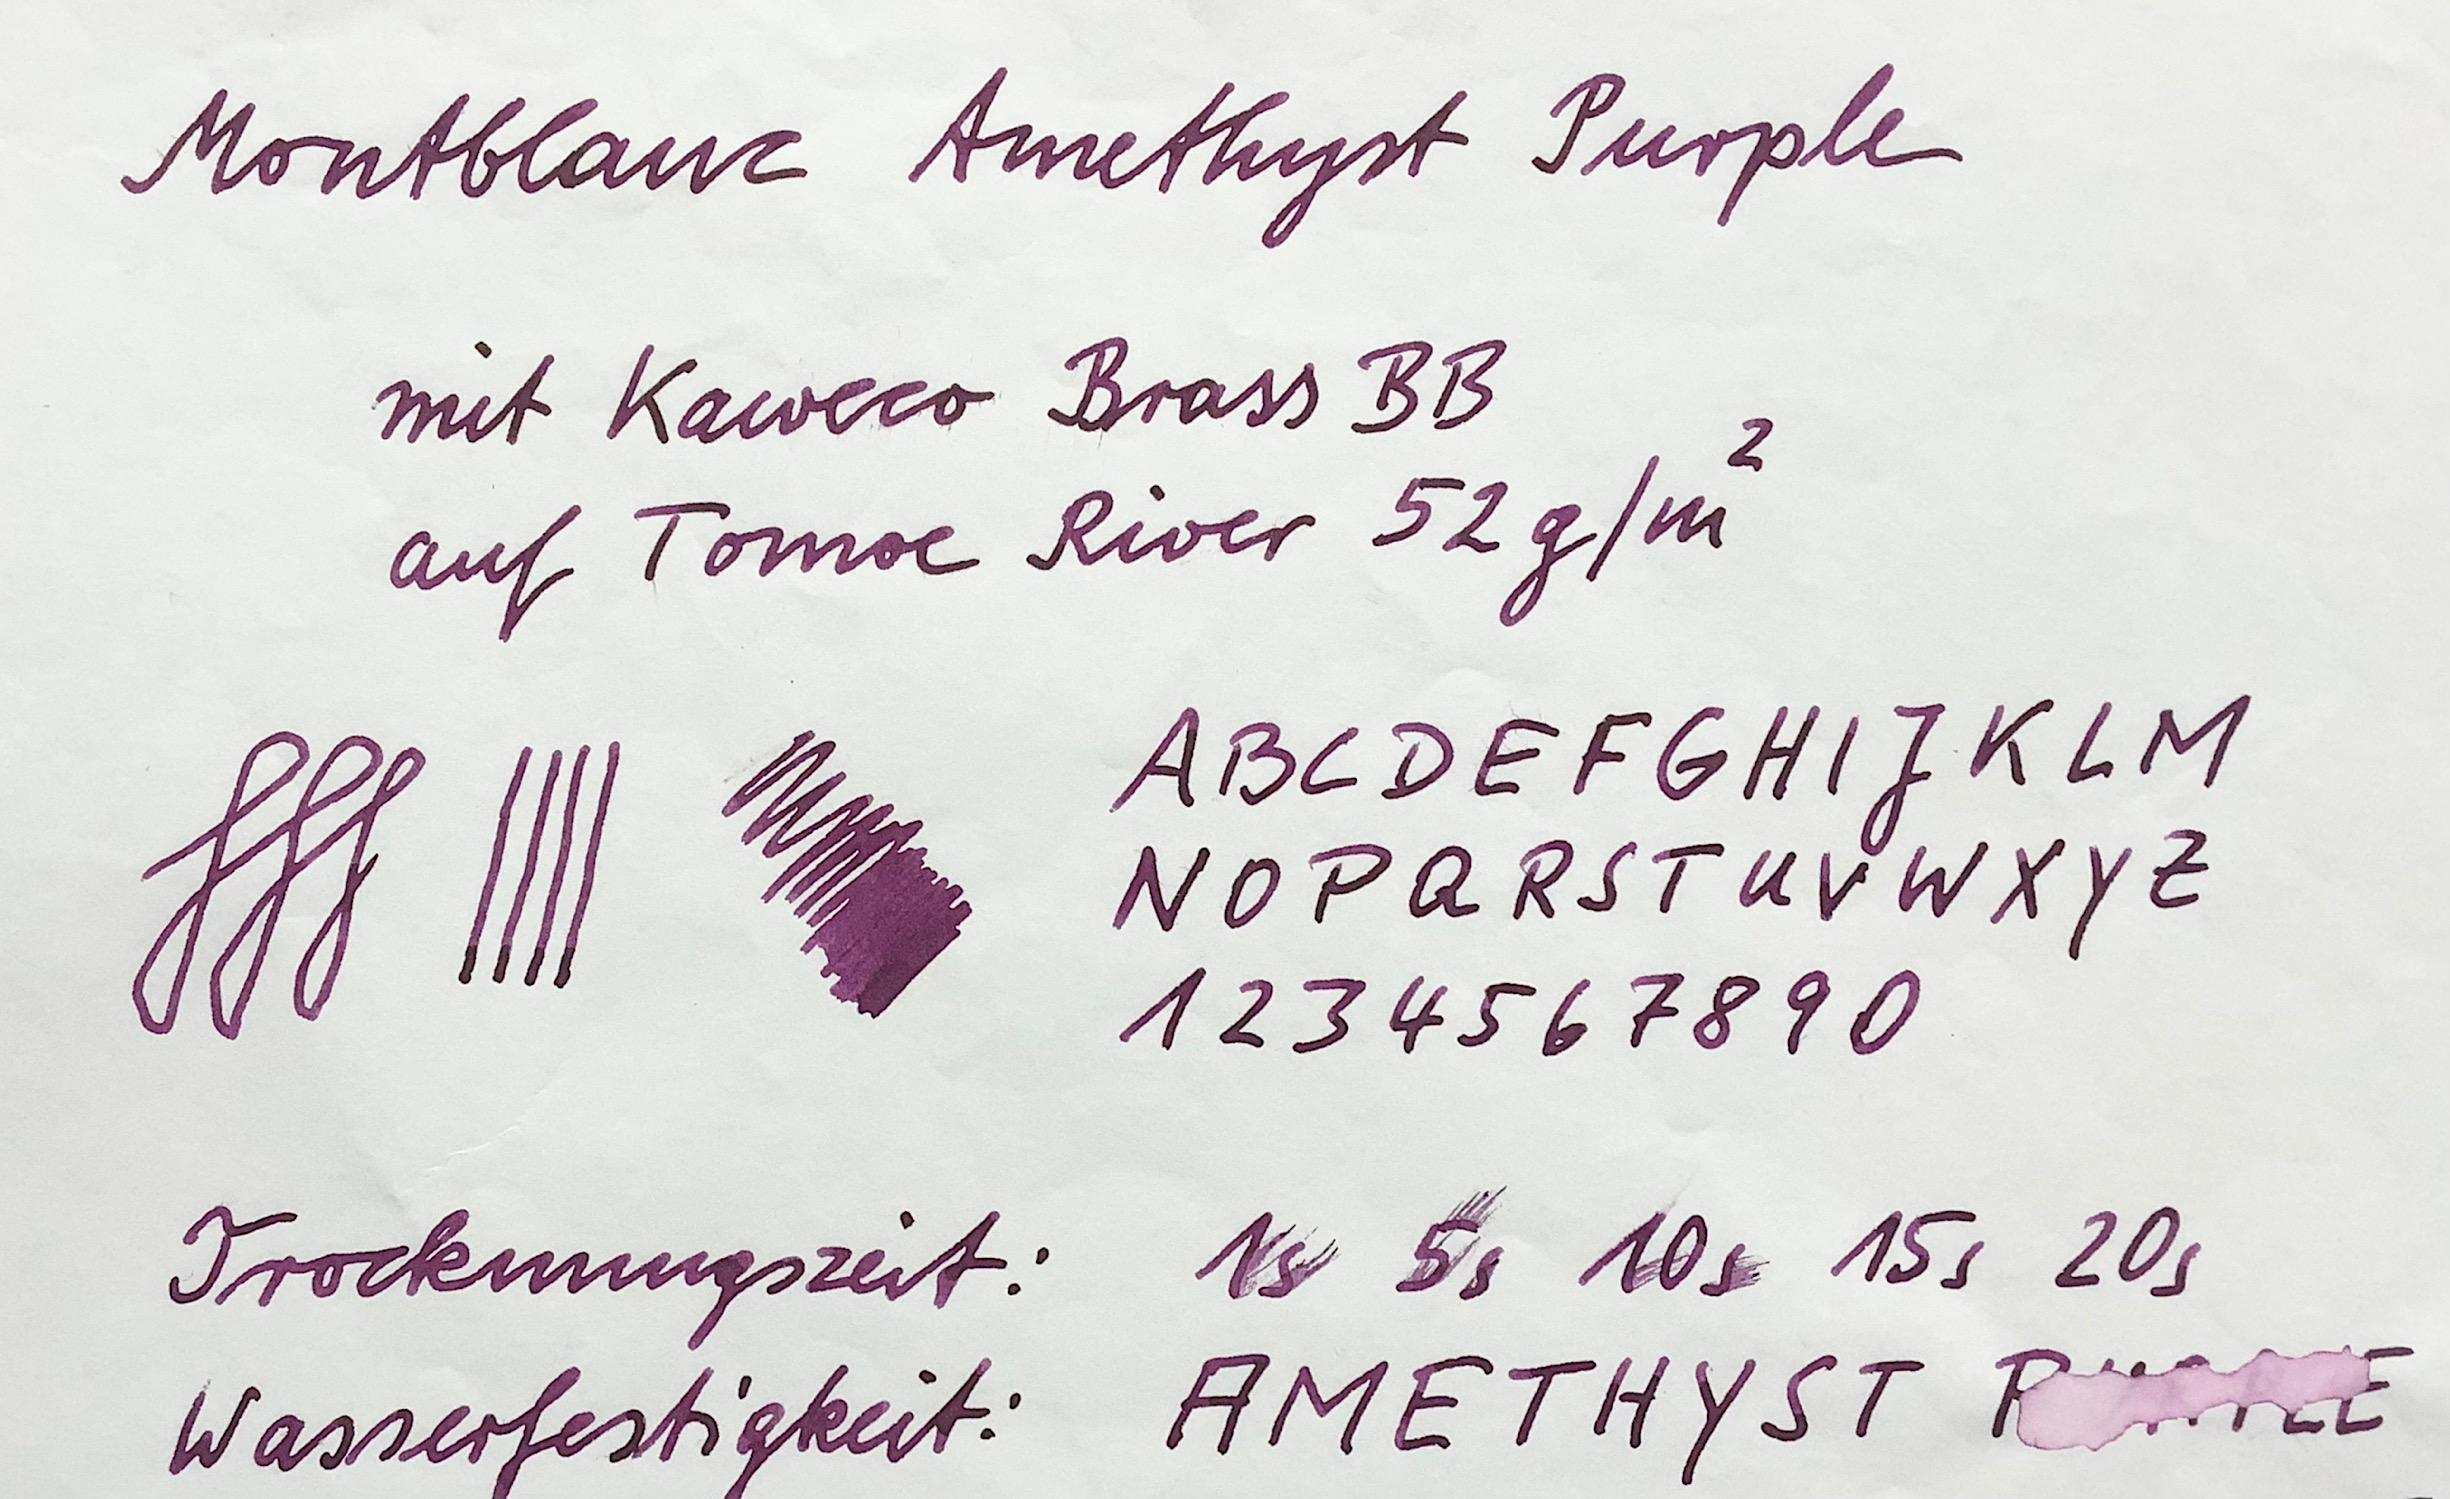 Montblanc Amethyst Purple
mit Kaweco Brass BB
auf Tomoe River 52g/m²
fff
ABCDEFGHIJKLM
NOPQRSTUVWXYZ
1234567890
Trocknungszeit: 1s 5s 10s 15s 20s
Wasserfestigkeit: AMETHYST PURPLE